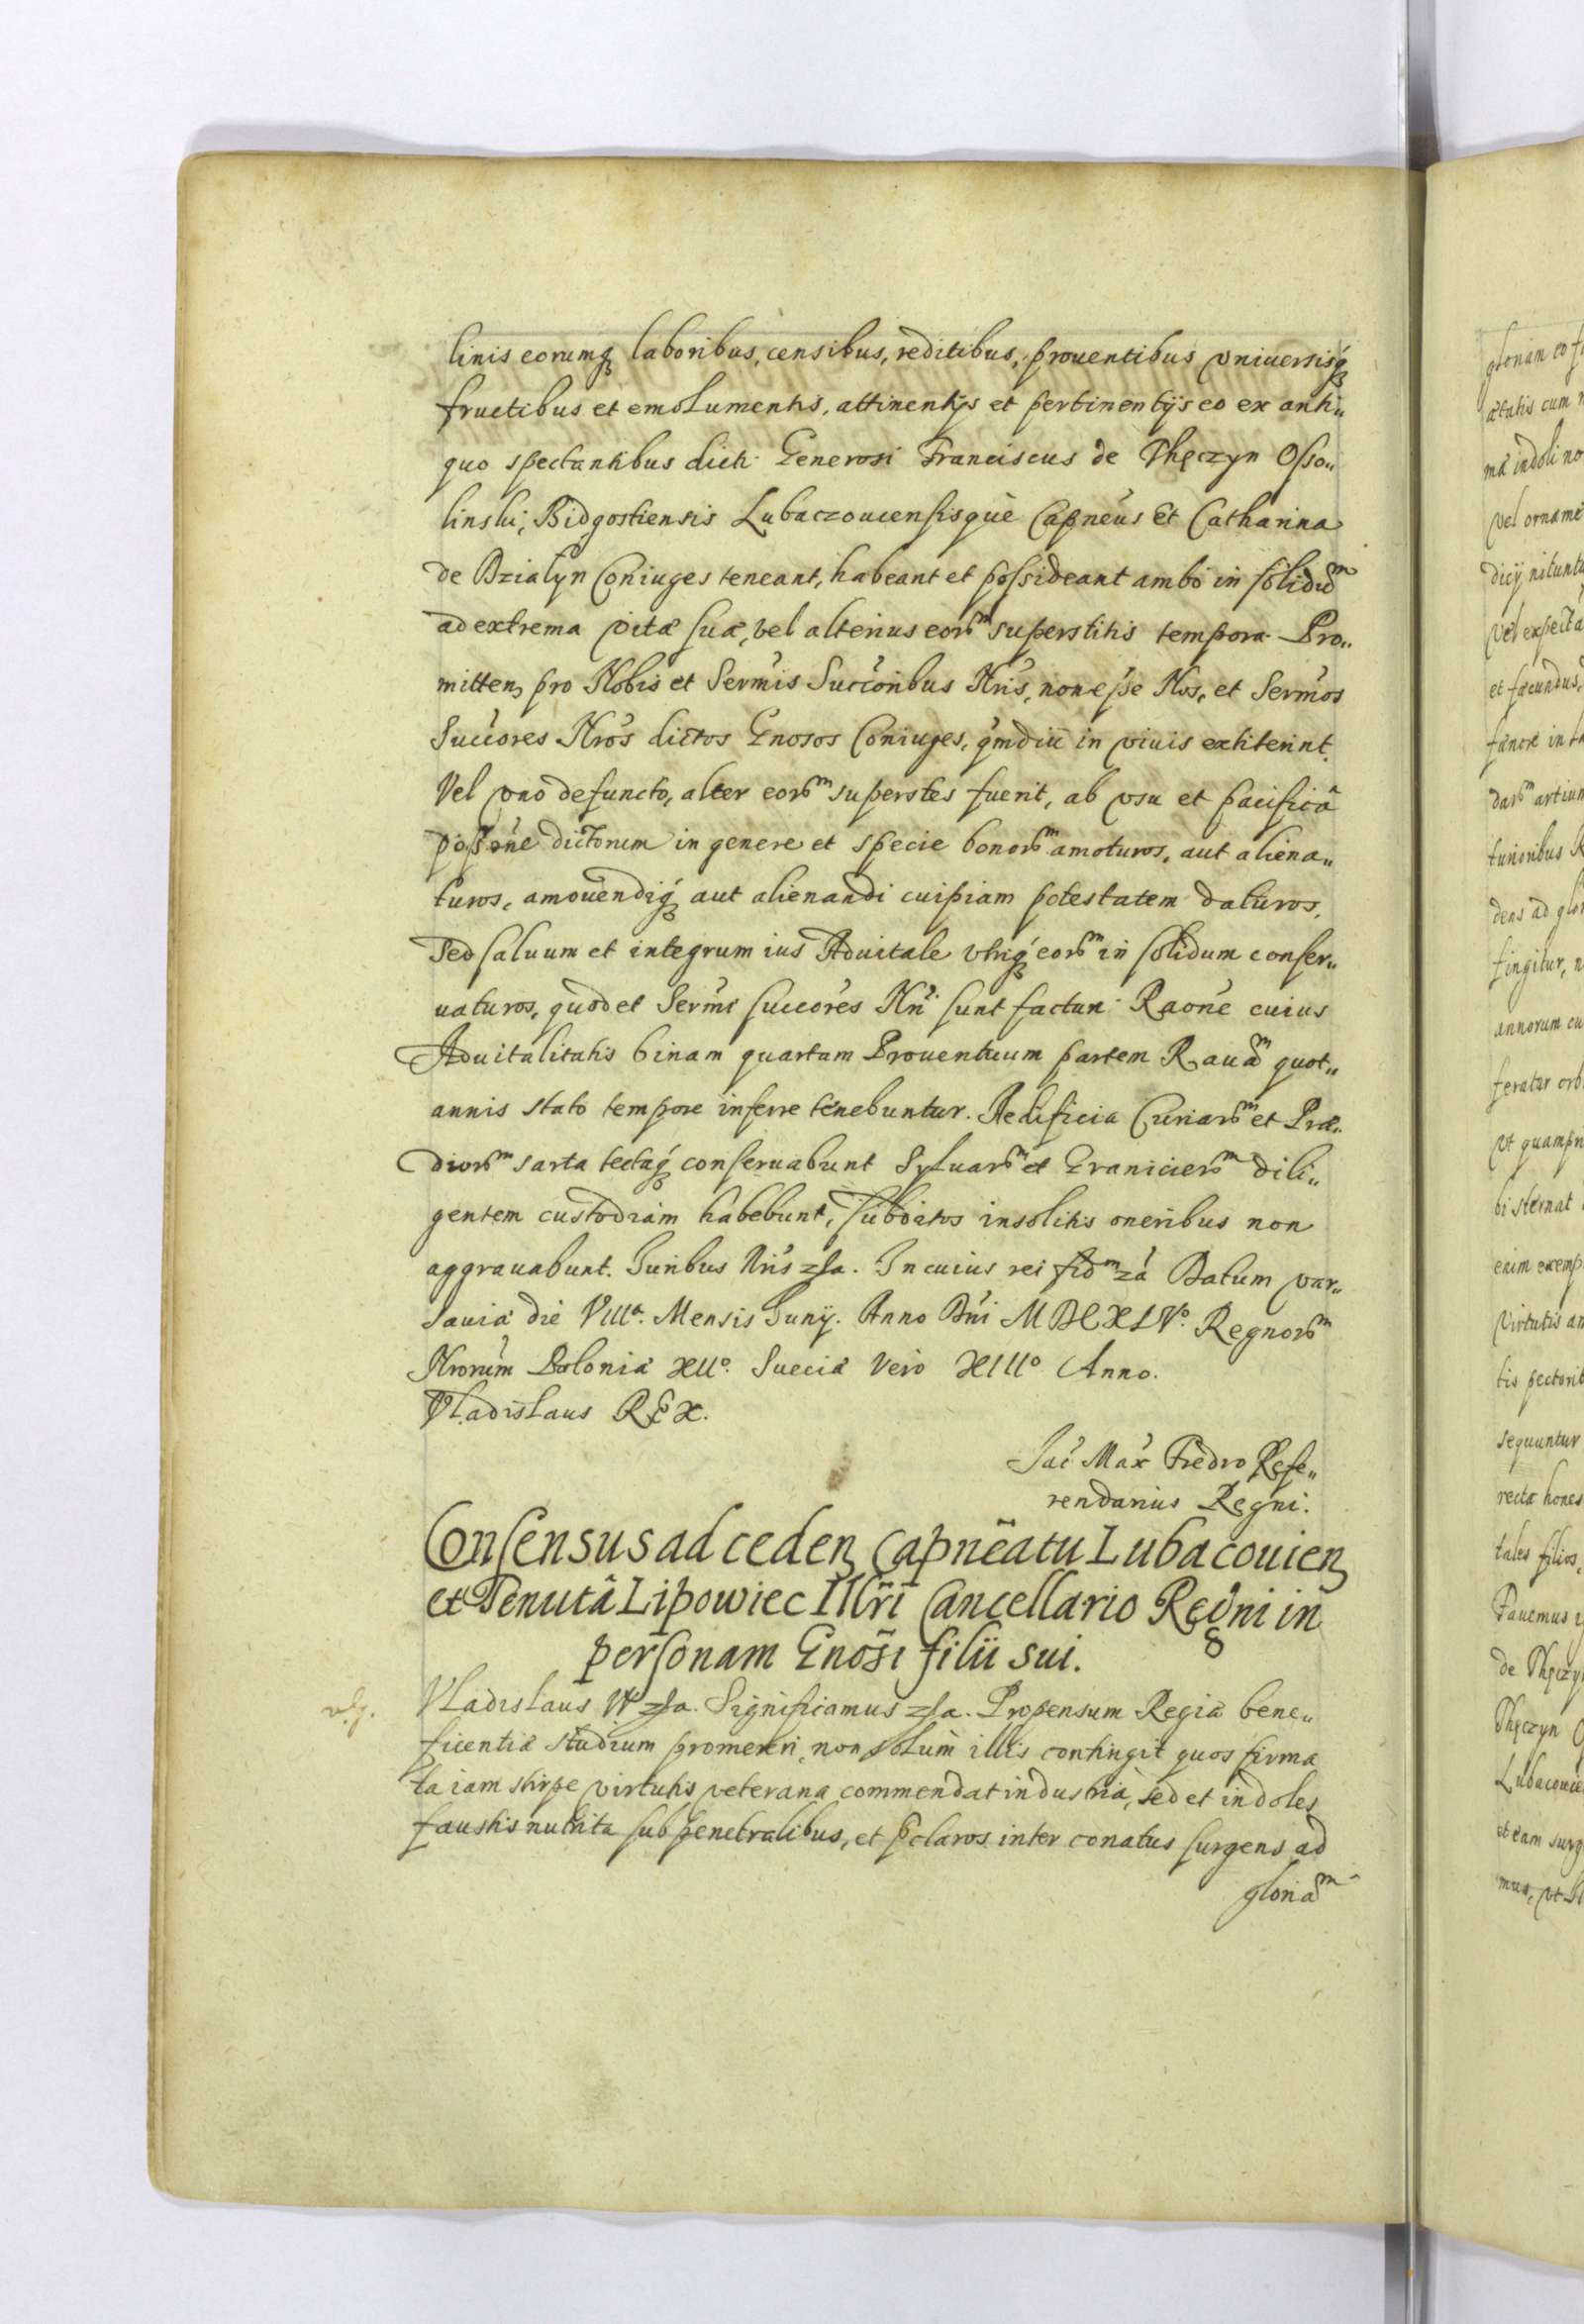 linis eorumq₃ laboribus, censibus, reditibus, prouentibus vniuersisq₃
fructibus et emolumentis, attinentijs et pertinentijs eo ex anti„
quo spectantibus dicti Generosi Franciscus de Thęczyn Osso„
linski, Bidgostiensis Lubaczouiensisque Capneus et Catharina
de Dzialyn Coniuges teneant, habeant et possideant ambo in solidũᵐ
ad extrema vitæ suæ, vel alterius eorᵐ superstitis tempora. Pro„
mitten₃ pro Nobis et Sermis Succoribus Nris, non esse Nos, et Sermos
Succores Nros dictos Gnosos Coniuges, qmdiu in viuis extiterint.
Vel vno defuncto, alter eorᵐ superstes fuerit, ab vsu et pacificâ
possone dictorum in genere et specie bonorᵐ amoturos, aut aliena„
turos, amouendiq₃ aut alienandi cuipiam potestatem daturos,
Sed saluum et integrum ius Aduitale vtriq₃ eorᵐ in solidum conser„
uaturos, quod et Sermi succores Nri sunt facturi. Raone cuius
Aduitalitatis binam quartam Prouentuum partem Rauãᵐ quot„
annis stato tempore inferre tenebuntur. Aedificia Curiarᵐ et Præ„
diorᵐ sarta tectaq₃ conseruabunt Syluarᵐ et Granicierᵐ dili„
gentem custodiam habebunt, subditos insolitis oneribus non
aggrauabunt. Iuribus Nris zſa. In cuius rei fidᵐ zá Datum var„
sauiæ die VIIIᵃ. Mensis Iunij. Anno Dni MDCXLVᵒ. Regnorᵐ
Nrorum Poloniæ XIIᵒ. Sueciæ vero XIIIᵒ Anno.
Vladislaus REX.
Jac Max Fredro Refe„
rendarius Regni.
Consensus ad ceden₃ Capneatu Lubacouien₃
et Tenutâ Lipowiec Illri Cancellario Regni in
personam Gnosi filii sui.
Vladislaus IV zſa. Significamus zſa. Propensum Regiæ bene„
ficentiæ studium promereri, non solum illis contingit quos firma
ta iam stirpe virtutis veterana commendat industria, sed et indoles
faustis nutrita sub penetralibus, et pclaros inter conatus surgens ad
gloriãᵐ